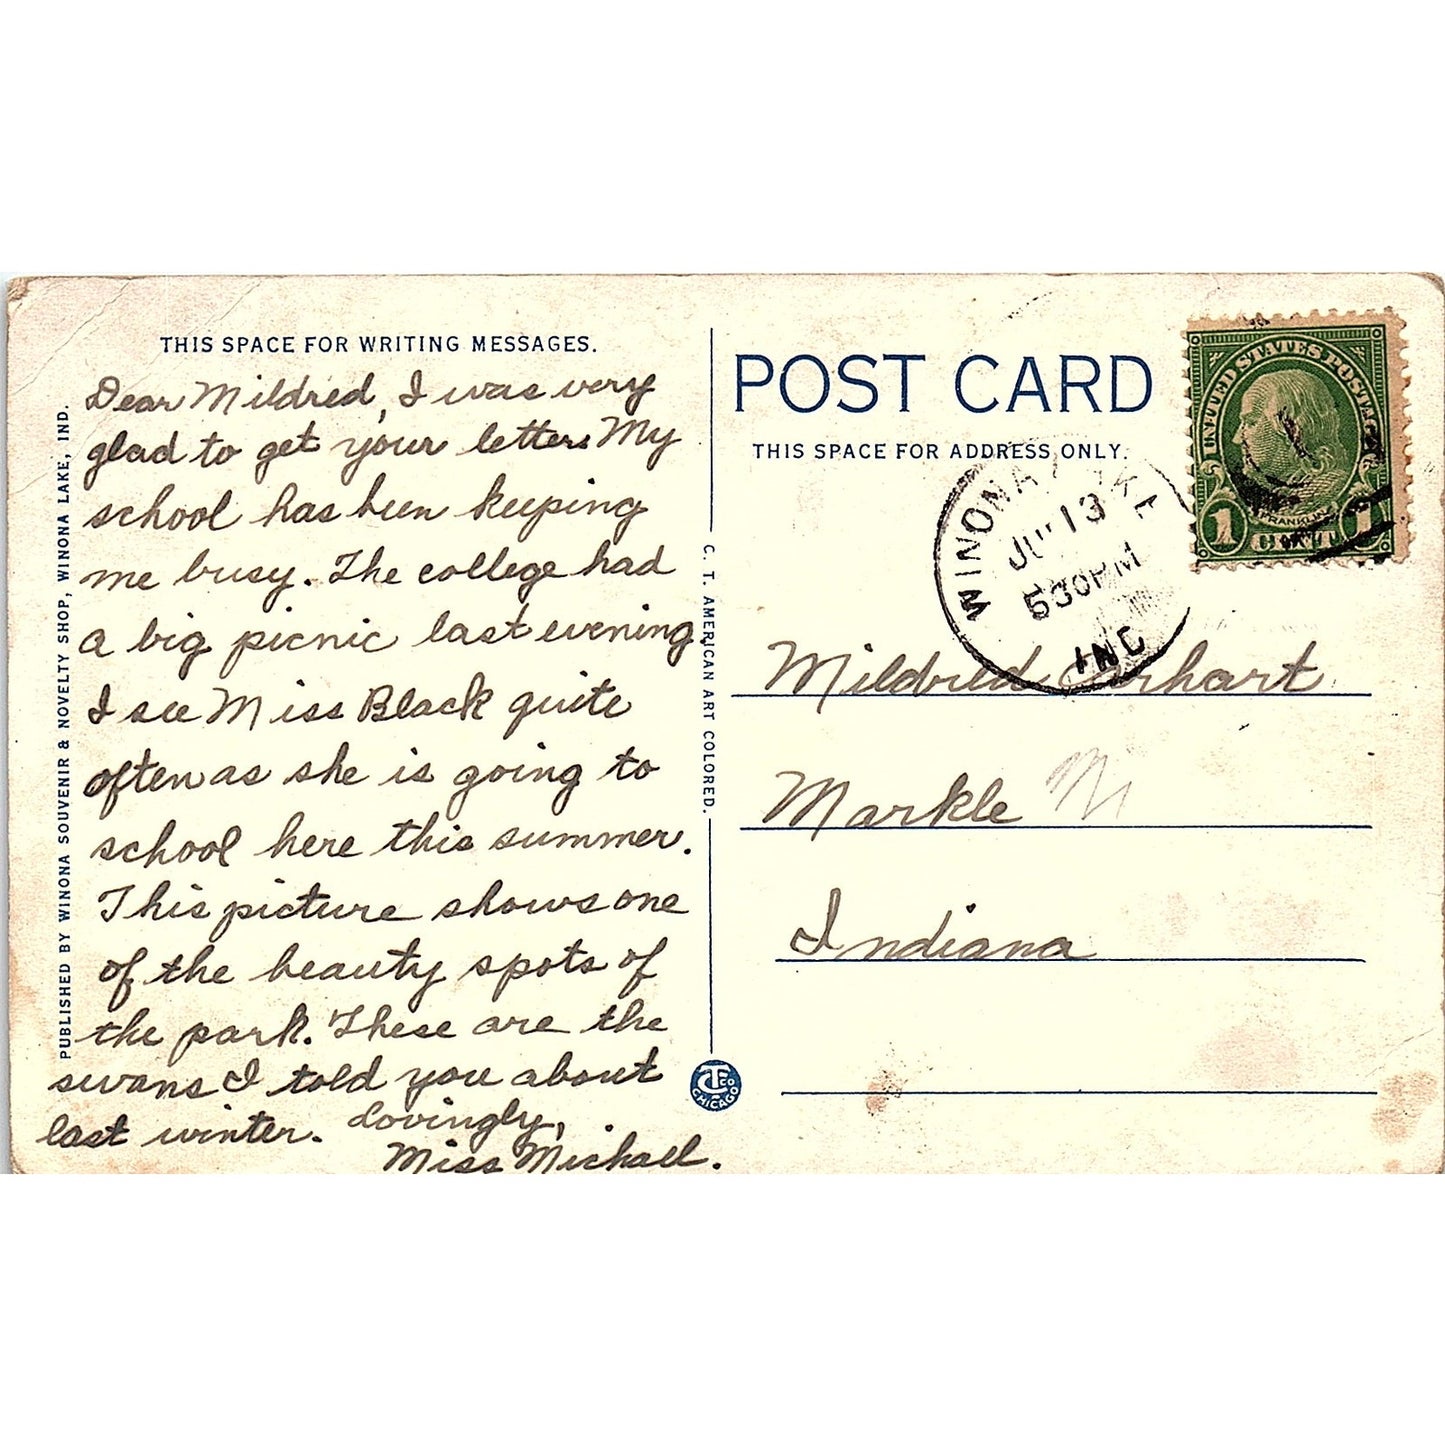 THIS SPACE FOR WRITING MESSAGES.
Dear Mildred, I was very
glad to get your letters My
school has been keeping
me busy. The college had
a big picnic last evening.
I see Miss Black quite
often as she is going to
school here this summer.
This picture shows one
of the beauty spots of
the park. These are the
swans I told you about
last winter. Lovingly,
Miss Michael.
PUBLISHED BY WINONA SOUVENIR & NOVELTY SHOP, WINONA LAKE, IND.
C. T. AMERICAN ART COLORED.
CT CO
CHICAGO
POST CARD
THIS SPACE FOR ADDRESS ONLY.
UNITED STATES POSTAGE
FRANKLIN
1 CENT 1
WINONA LAKE
13
530 PM
IND
Mildred
Markle M
Indiana